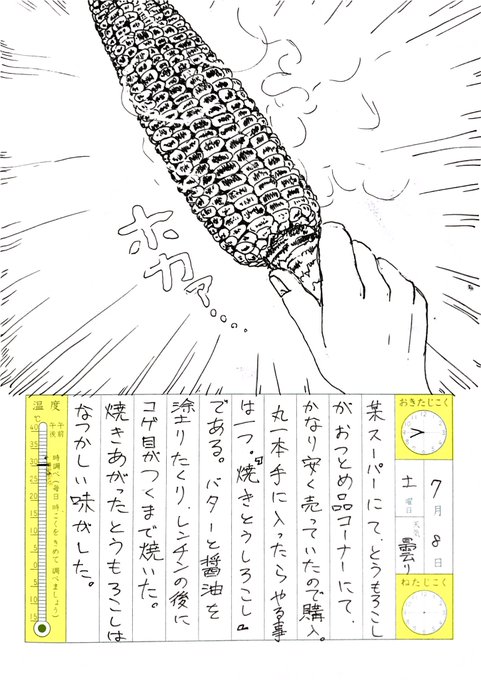 ホカァ‥‥
おきたじこく
7月8日
土曜日
天気 曇り
ねたじこく
某スーパーにて、とうもろこし
がおつとめ品コーナーにて、
かなり安く売っていたので購入。
丸一本手に入ったらやる事
は一つ。『焼きとうしろこし』
である。バターと醤油を
塗りたくり、レンチンの後に
コゲ目がつくまで焼いた。
焼きあがったとうもろこしは
なつかしい味がした。
温度
℃
午前
午後
時調べ(毎日時こくをきめて調べましょう)
40
35
30
25
20
15
10
5
0
5
10
15